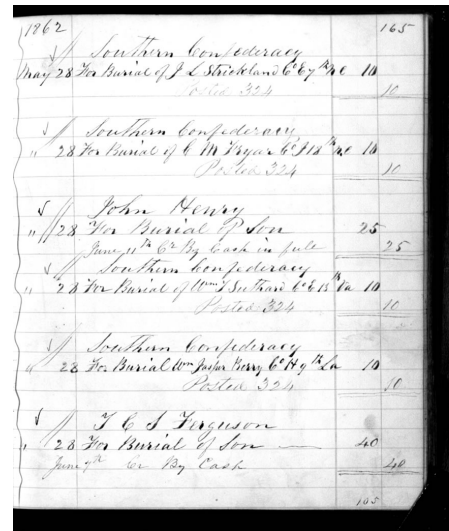 1862 165
Southern Confederacy
May 28 For Burial of J L Strickland Co E 7th NC 10
Posted 324 10
Southern Confederacy
" 28 For Burial of C M Fryar Co I 18th NC 10
Posted 324 10
John Henry
" 28 For Burial of Son 25
June 11th Cr By Cash in full 25
Southern Confederacy
" 28 For Burial of Wm T Suthard Co E 13th Va 10
Posted 324 10
Southern Confederacy
" 28 For Burial Wm Jaspar Perry Co H 9th La 10
Posted 324 10
T C S Ferguson
" 28 For Burial of Son 40
June 7th Cr By Cash 40
105